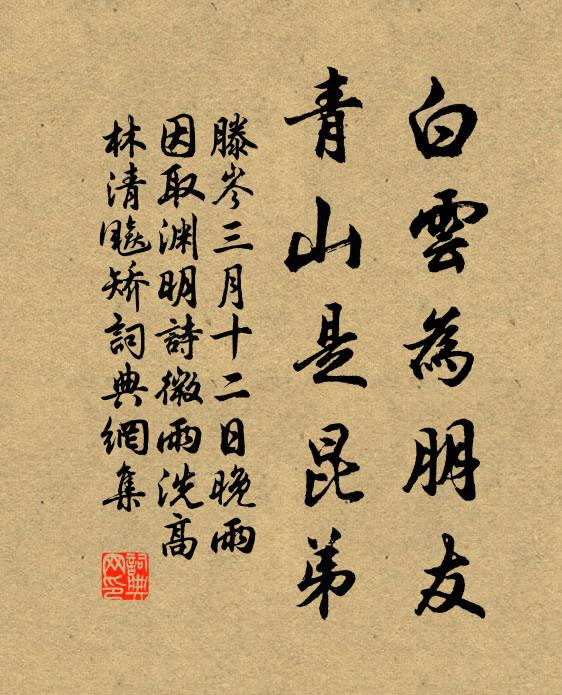 白雲為朋友
青山是昆弟
滕岑三月十二日晚雨
因取渊明詩微雨洗高
林清飚矫詞典網集
詞典
网印